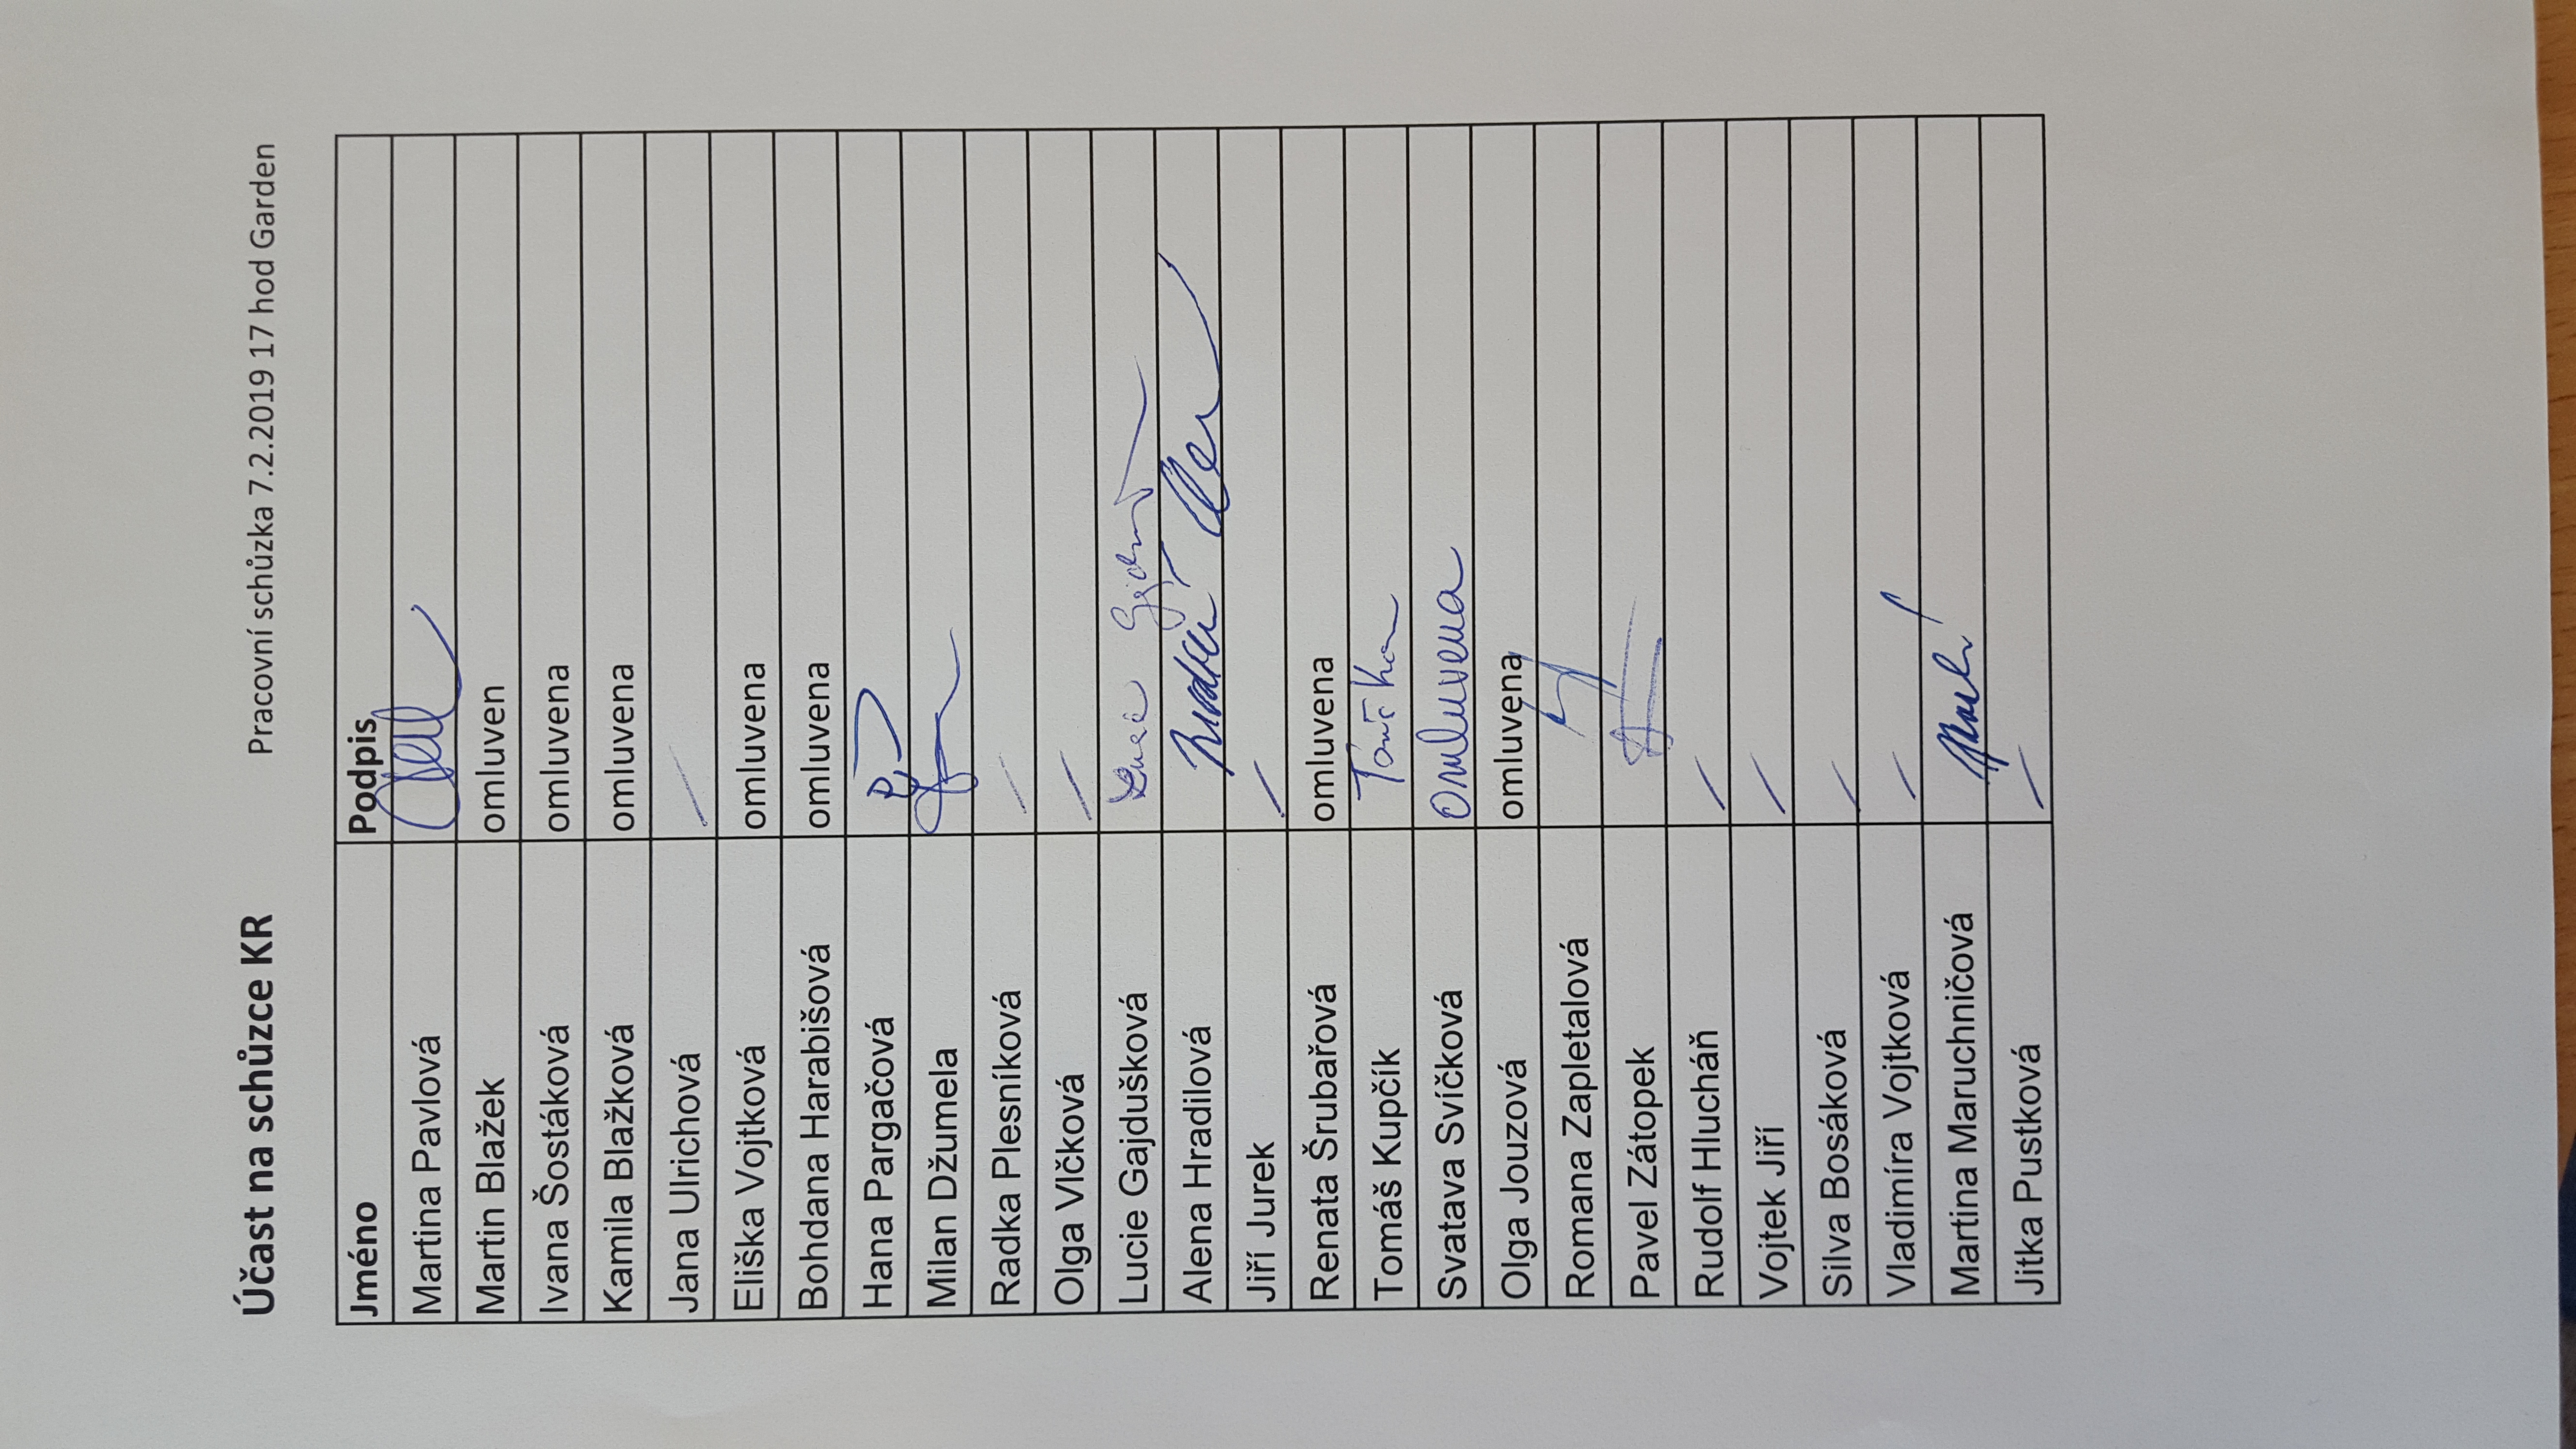 Účast na schůzce KR Pracovní schůzka 7.2.2019 17 hod Garden
Jméno Podpis
Martina Pavlová
Martin Blažek omluven
Ivana Šostáková omluvena
Kamila Blažková omluvena
Jana Ulrichová
Eliška Vojtková omluvena
Bohdana Harabišová omluvena
Hana Pargačová
Milan Džumela
Radka Plesníková
Olga Vlčková
Lucie Gajdušková
Alena Hradilová
Jiří Jurek
Renata Šrubařová omluvena
Tomáš Kupčík
Svatava Svíčková omluvena
Olga Jouzová omluvena
Romana Zapletalová
Pavel Zátopek
Rudolf Hlucháň
Vojtek Jiří
Silva Bosáková
Vladimíra Vojtková
Martina Maruchničová
Jitka Pustková